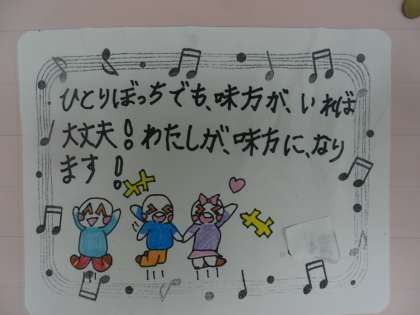 ひとりぼっちでも、味方が、いれば
大丈夫！わたしが、味方に、なり
ます！